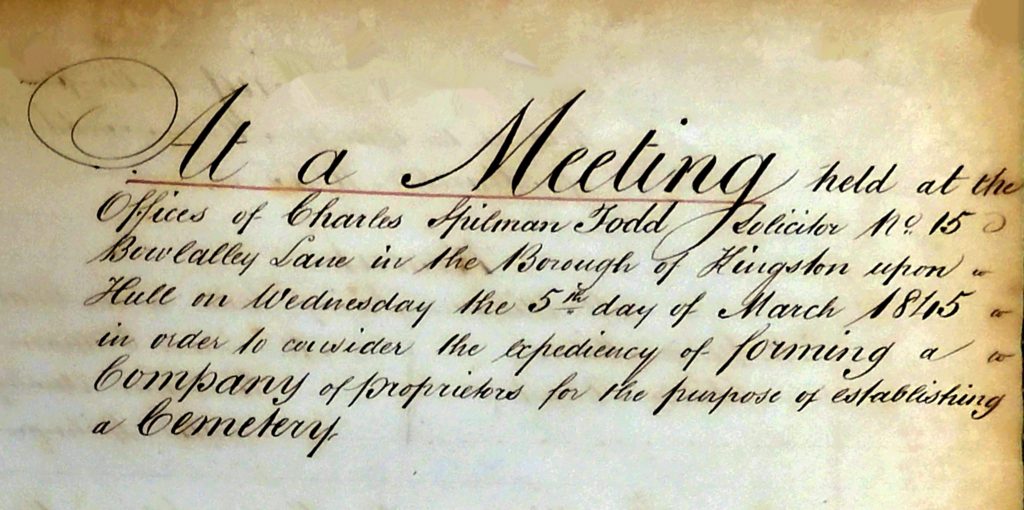 At a Meeting held at the
Offices of Charles Spilman Todd Solicitor No. 15
Bowlalley Lane in the Borough of Kingston upon
Hull on Wednesday the 5th day of March 1845
in order to consider the expediency of forming a
Company of proprietors for the purpose of establishing
a Cemetery.